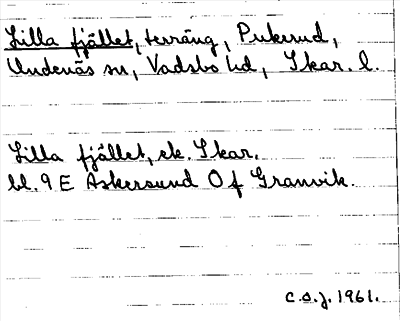 Lilla fjället, terräng, Pukerud,
Undenäs sn, Vadsbo hd, Skar. l.
Lilla fjället, ek. Skar.
bl. 9 E Askersund O f Granvik.
C.S.J. 1961.